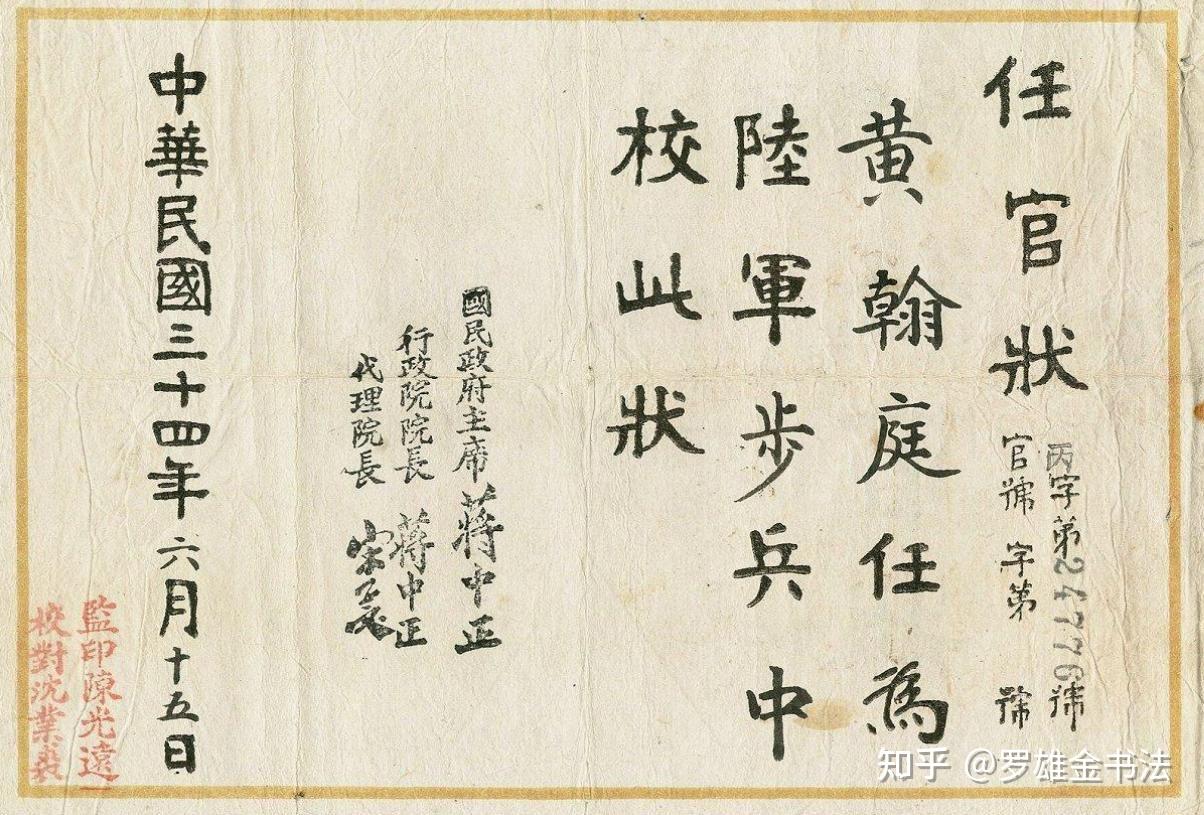 任官狀
丙字第24776號
官號 字第 號
黃翰庭任為
陸軍步兵中
校此狀
國民政府主席 蔣中正
行政院院長 蔣中正
代理院長 宋子文
中華民國三十四年六月十五日
監印陳光遠
校對沈業義
知乎 @罗雄金书法